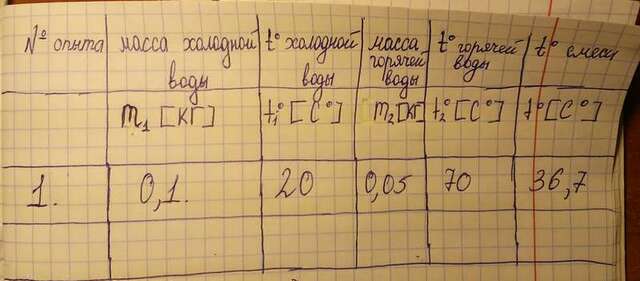 № опыта масса холодной воды t° холодной воды масса горячей воды t° горячей воды t° смеси
m₁ [КГ] t₁° [C°] m₂ [КГ] t₂° [C°] t° [C°]
1. 0,1. 20 0,05 70 36,7